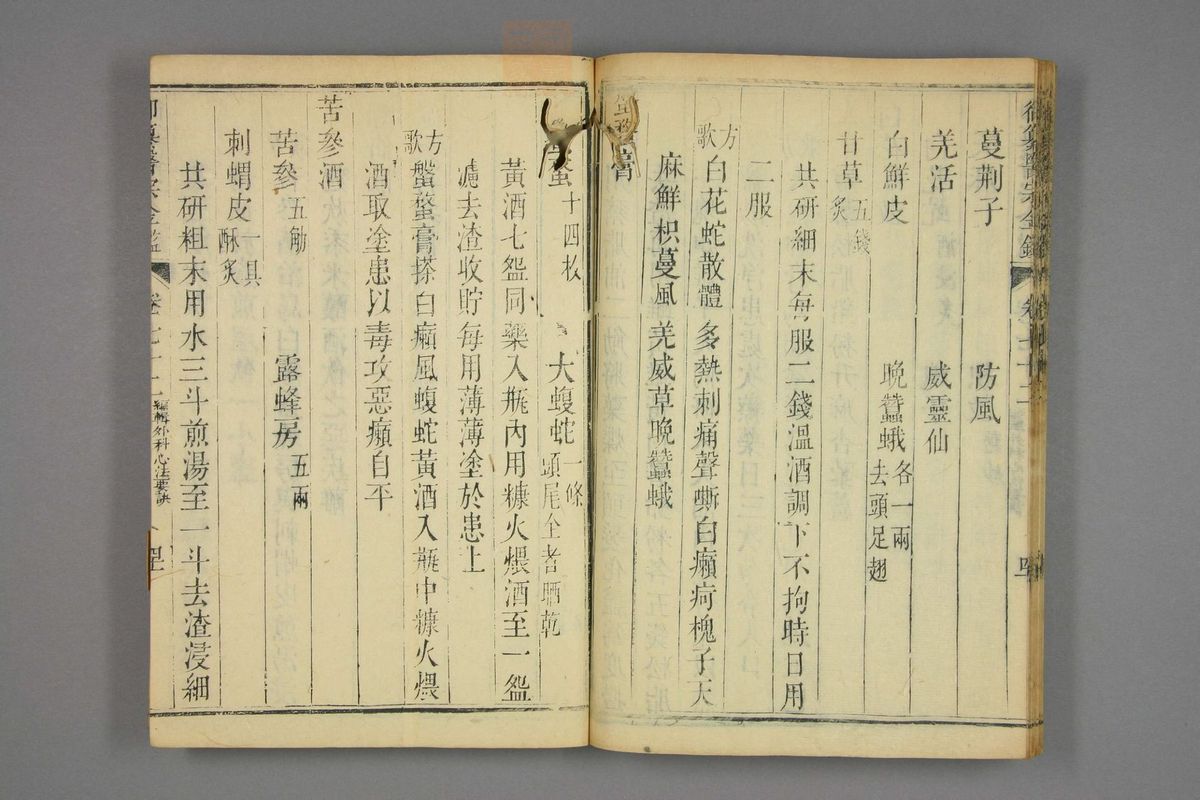 蔓荆子　防風
羌活　威靈仙
白鮮皮　晩蠶蛾各一兩去頭足翅
甘草五錢炙
共研細末每服二錢溫酒調下不拘時日用
二服
方歌白花蛇散體多熱刺痛聲嘶白癩疴槐子天
麻鮮枳蔓風羌威草晩蠶蛾
膏
十四枚　大蝮蛇一條頭尾全者晒乾
黃酒七盌同藥入瓶內用糠火煨酒至一盌
濾去渣收貯每用薄薄塗於患上
方歌䗋螫膏搽白癩風蝮蛇黃酒入瓶中糠火煨
酒取塗患以毒攻惡癩自平
苦參酒
苦參五觔　露蜂房五兩
刺蝟皮一具酥炙
共研粗末用水三斗煎湯至一斗去渣浸細
卷七十二
編輯外科心法要訣